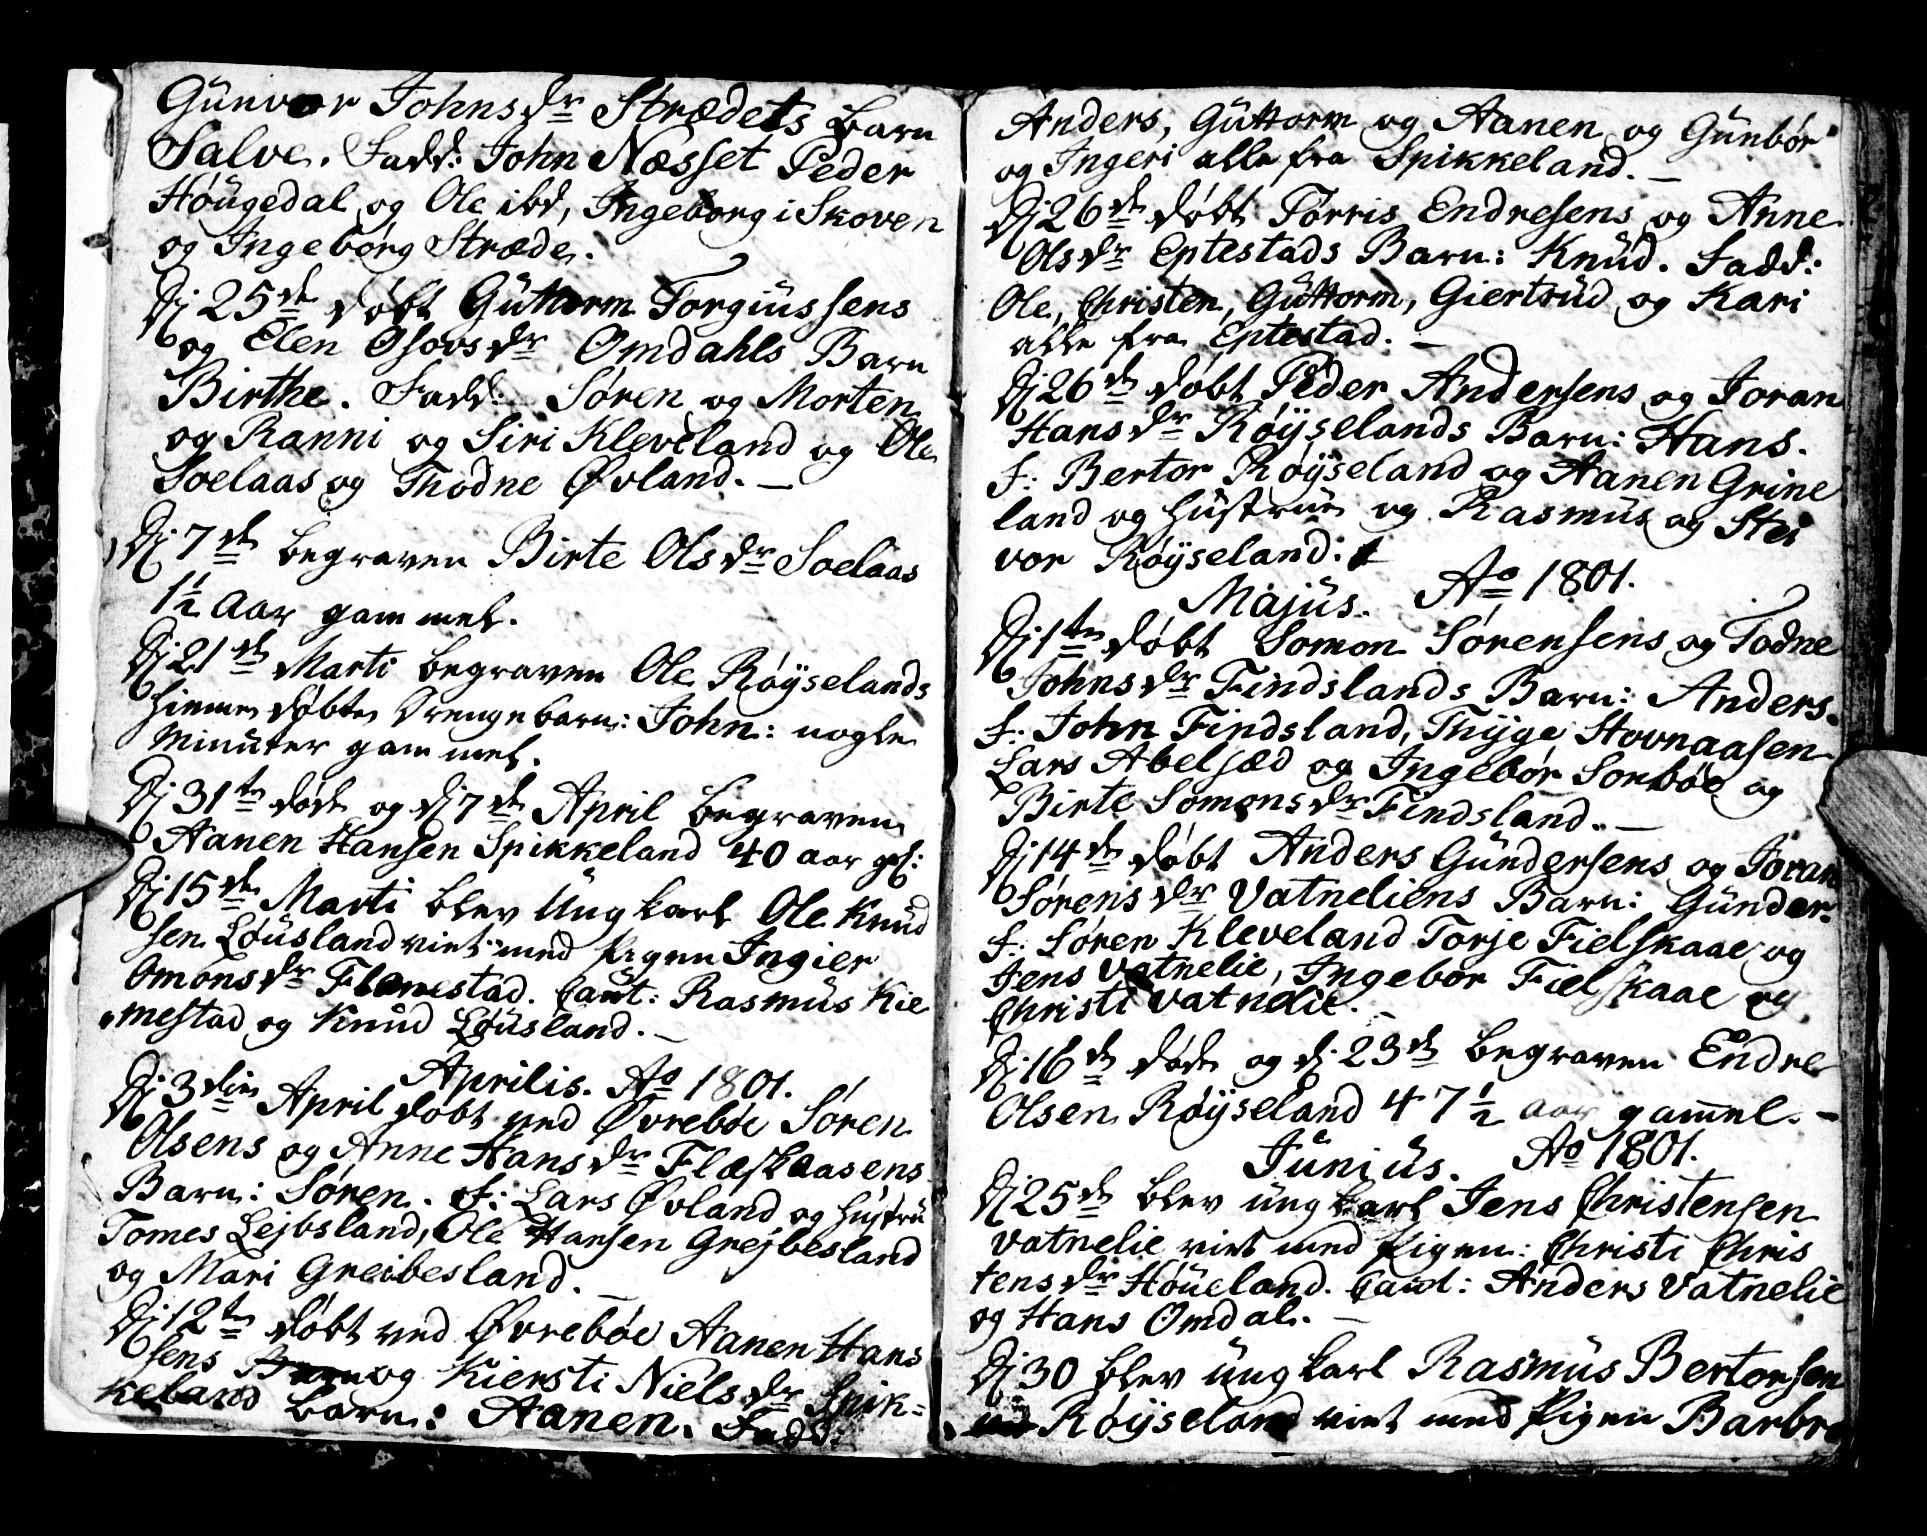 Gunvor Johnsdr Strædets Barn
Salve. Fadd: John Næsset Peder
Höugedal og Ole ibd, Ingeborg i Skoven
og Ingebørg Stræde.
Dj 25de døbt Guttorm Torgiussens
og Elen Osovsdr Omdahls Barn
Birthe. Fadd: Søren og Morten
og Ranni og Siri Kleveland og Ole
Soelaas og Thodne Øvland. —
Dj 7de begraven Birte Olsdr Soelaas
1½ Aar gammel.
Dj 21de Marti begraven Ole Røyselands
hiemmedøbte Drengebarn: John: nogle
Minuter gammel.
Dj 31te døde og dj 7de April begraven
Aanen Hansen Spikkeland 40 aar gl:
Dj 15de Marti blev Ungkarl Ole Knud
sen Löusland viet med Pigen Ingier
Omonsdr Flonestad. Caut: Rasmus Kie
mestad og Knud Löusland. —
Aprilis. Ao 1801.
Dj 3die April døbt ved Øvrebøe Søren
Olsens og Anne Hansdr Flæskaasens
Barn: Søren. F: Lars Øvland og Hustru
Tomes Lejbsland, Ole Hansen Grejbesland
og Mari Greibesland. —
Dj 12te døbt ved Øvrebøe Aanen Hans
sens og Kiersti Nielsdr Spik=
keland Barn: Aanen. Fadd:
Anders, Guttorm og Aanen og Gunbor
og Ingeri alle fra Spikkeland. —
Dj 26de døbt Torris Endresens og Anne
Olsdr Eptestads Barn: Knud. Fadd:
Ole, Christen, Guttorm, Giertrud og Kari
alle fra Eptestad. —
Dj 26de døbt Peder Andersens og Joran
Hansdr Røyselands Barn: Hans.
F: Bertor Røyseland og Aanen Grine
land og Hustrue og Rasmus og Stei
vor Røyseland:
Majus. Ao 1801.
Dj 1te døbt Somon Sørensens og Todne
Johnsdr Findslands Barn: Anders.
F: John Findsland, Thyge Stovnaasen
Lars Abelsæd og Ingebor Sonbøe og
Birte Somonsdr Findsland. —
Dj 14de døbt Anders Gundersens og Joran
Sørensdr Vatneliens Barn: Gunder.
F: Søren Kleveland Torje Fielskaae og
Jens Vatnelie, Ingebor Fielskaae og
Christi Vatnelie. —
Dj 16de døde og dj. 23de begraven Endre
Olsen Røyseland 47½ aar gammel. —
Junius. Ao 1801.
Dj 25de blev ungkarl Jens Christensen
Vatnelie viet med Pigen: Christi Chris
tensdr Höueland. Caut: Anders Vatnelie
og Hans Omdal. —
Dj 30 blev ungkarl Rasmus Bertorsen
Røyseland viet med Pigen Barbro